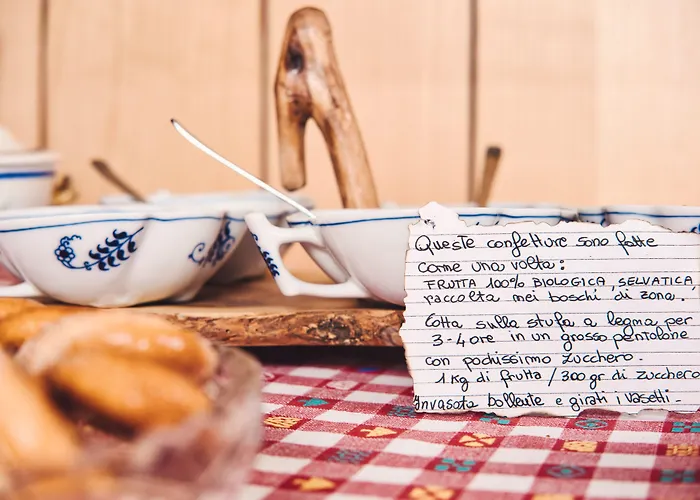 Queste confetture sono fatte
come una volta:
FRUTTA 100% BIOLOGICA, SELVATICA,
raccolta nei boschi di zona.
Cotta sulla stufa a legna per
3-4 ore in un grosso pentolone
con pochissimo zucchero.
1 Kg di frutta / 300 gr. di zucchero
Invasata bollente e girati i vasetti.-